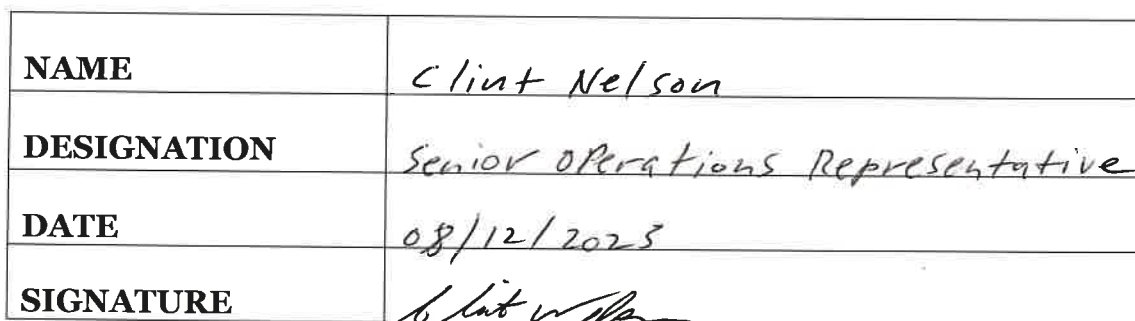 NAME Clint Nelson
DESIGNATION Senior Operations Representative
DATE 08/12/2023
SIGNATURE